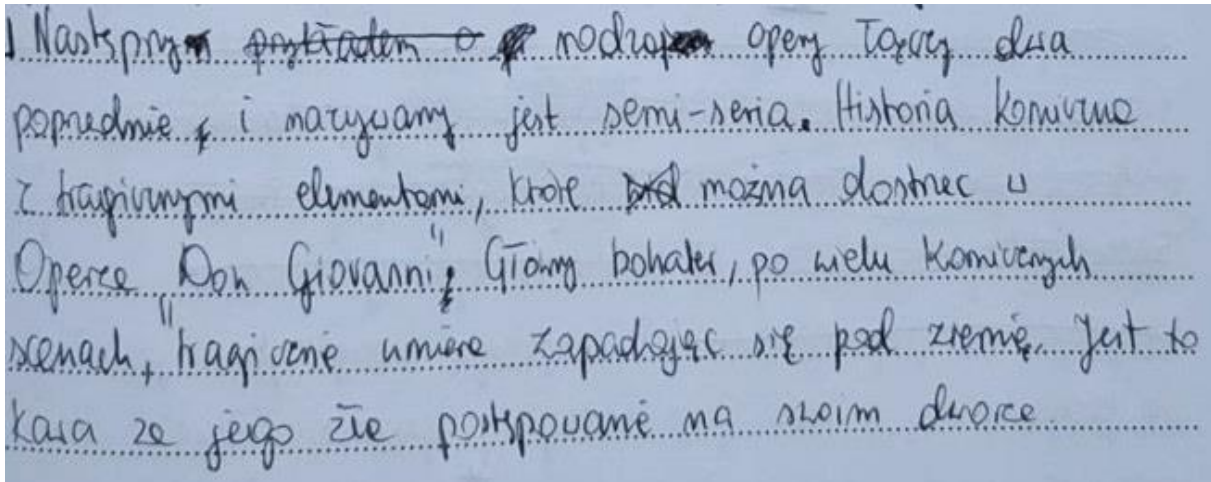 Następny rodzaj opery łączy dwa
poprzednie i nazywany jest semi-seria. Historia komiczna
z tragicznymi elementami, które można dostrzec w
Operze "Don Giovanni". Główny bohater, po wielu komicznych
scenach, tragicznie umiera zapadając się pod ziemię. Jest to
kara za jego złe postępowanie na swoim dworze.